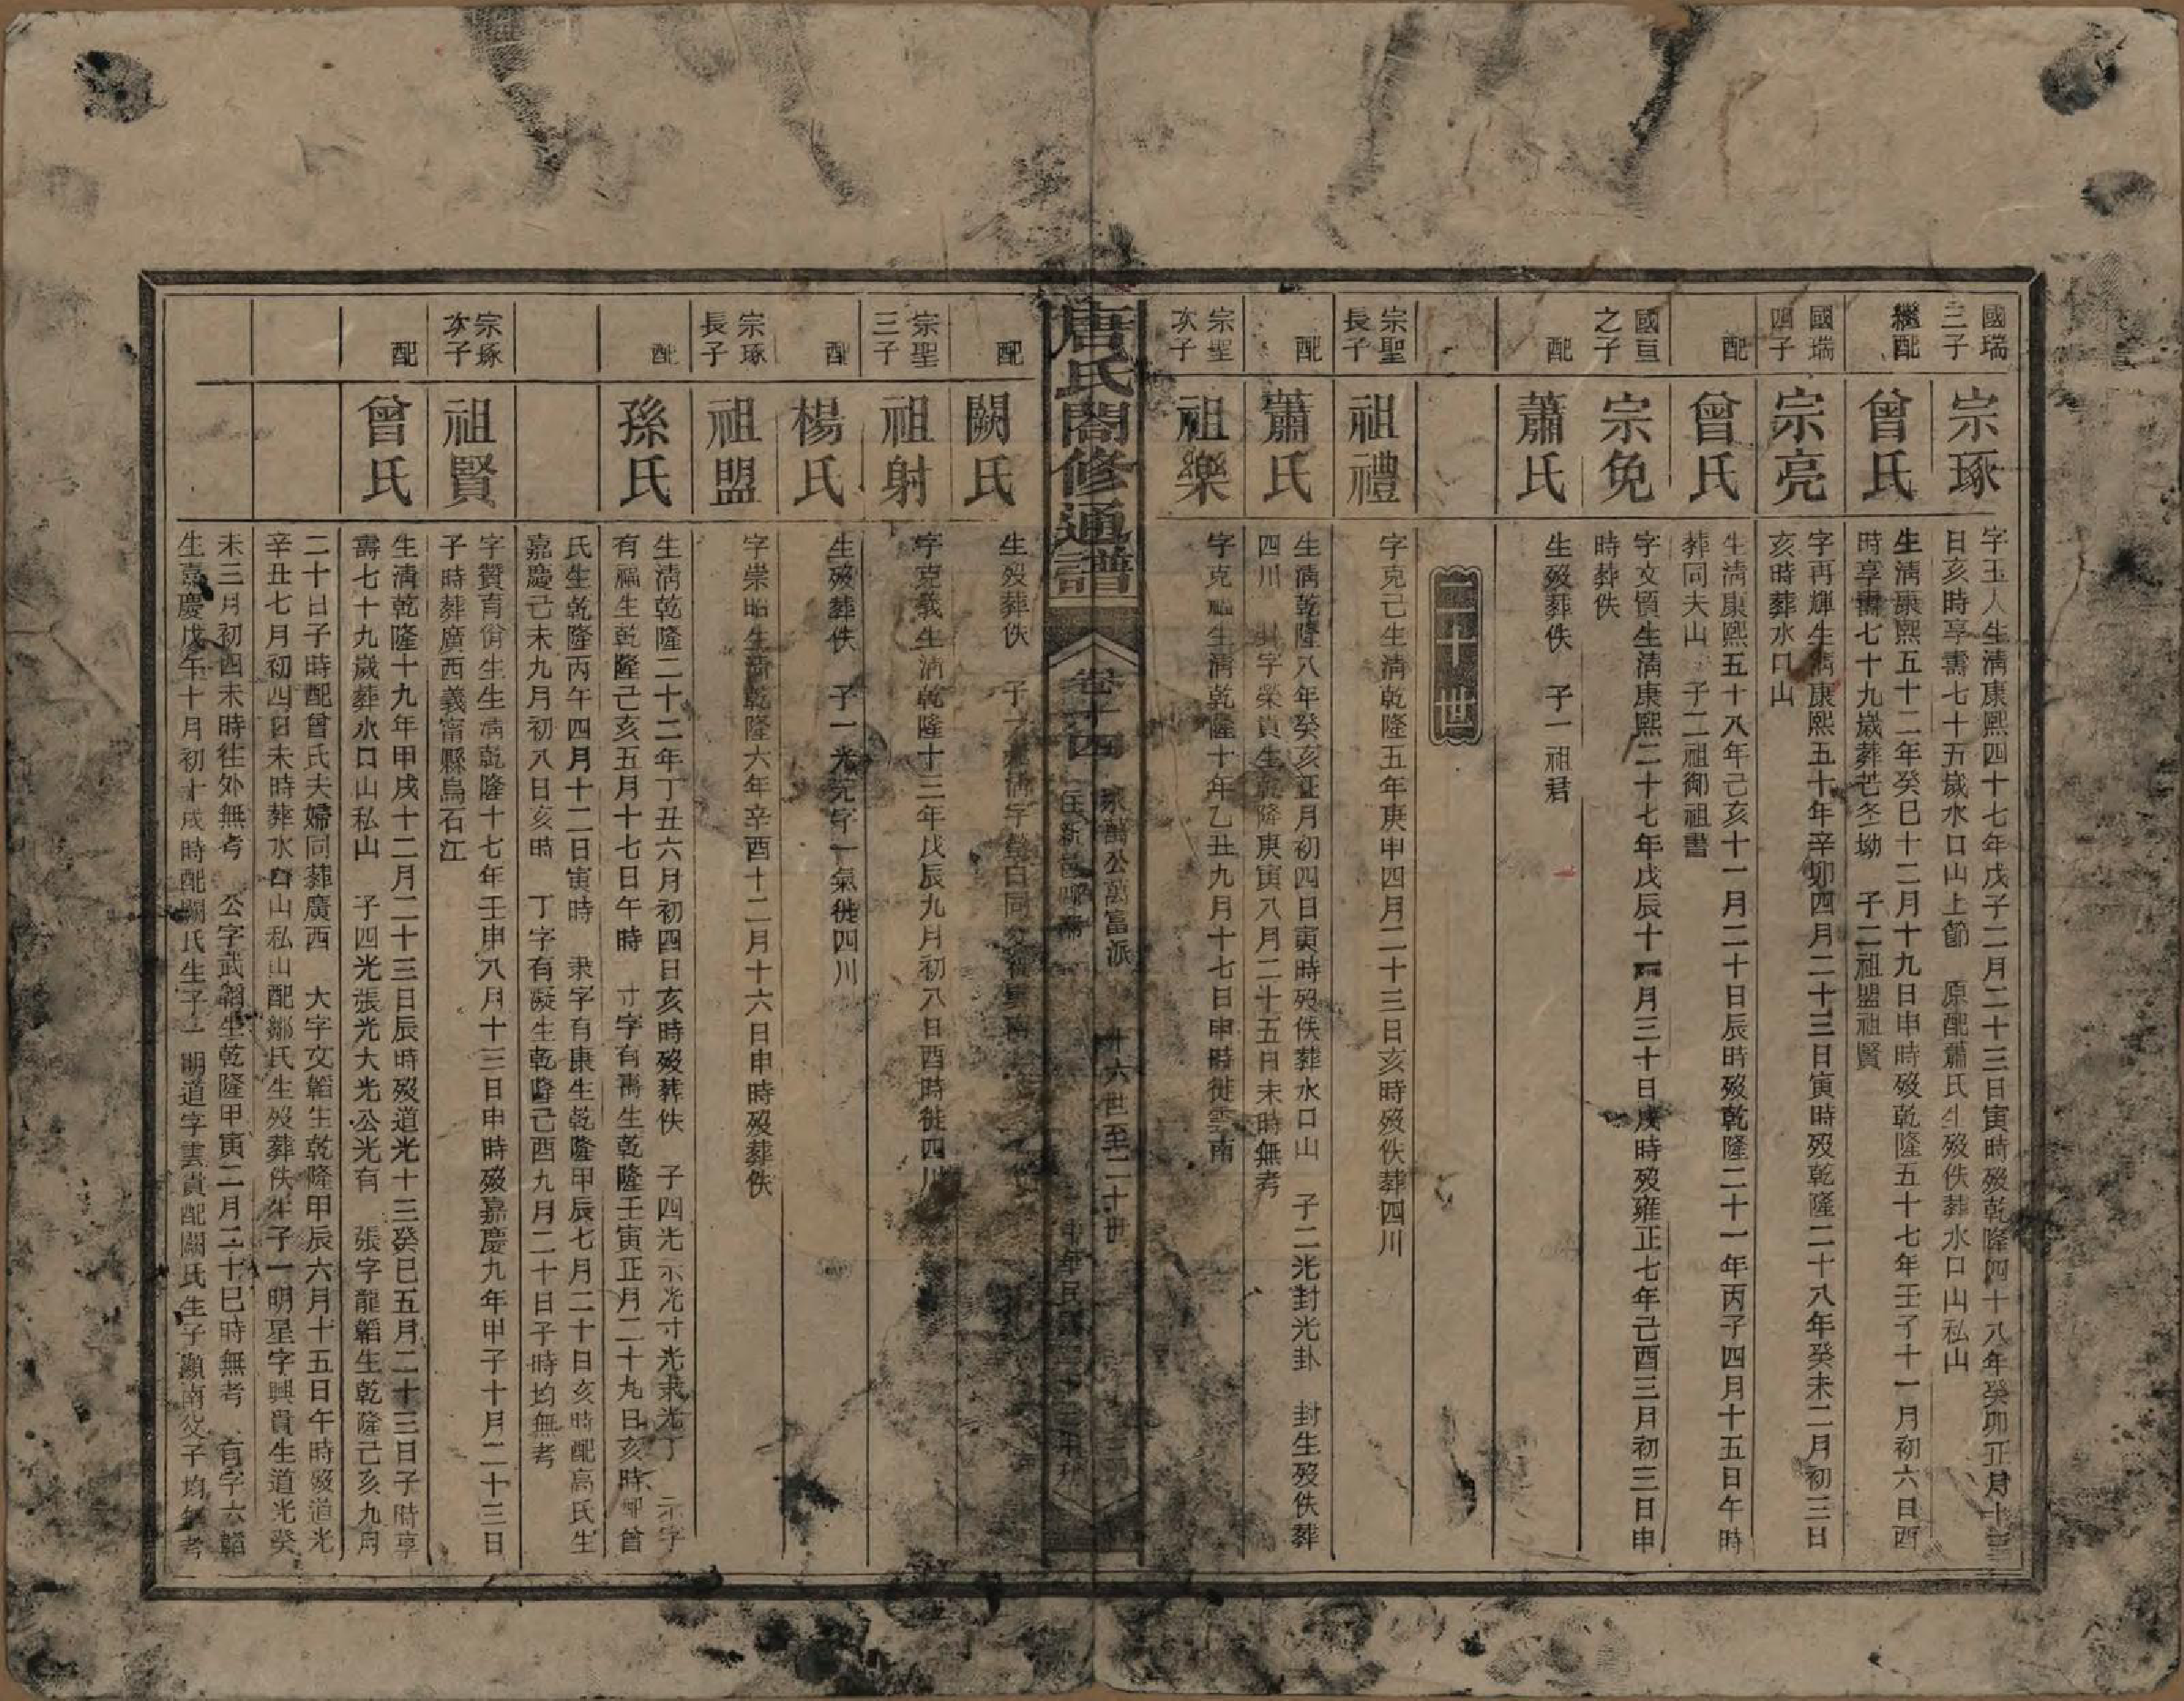 國瑞
三子
宗琢
字玉人生淸康熙四十七年戊子二月二十三日寅時歿乾隆四十八年癸卯正月十三
日亥時享壽七十五歲水口山上節　原配蕭氏生歿佚葬水口山私山
繼配
曾氏
生淸康熙五十二年癸巳十二月十九日申時歿乾隆五十七年壬子十一月初六日酉
時享壽七十九歲葬芒冬坳　子二祖盟祖賢
國瑞
四子
宗亮
字再輝生淸康熙五十年辛卯四月二十三日寅時歿乾隆二十八年癸未二月初三日
亥時葬水口山
配
曾氏
生淸康熙五十八年己亥十一月二十日辰時歿乾隆二十一年丙子四月十五日午時
葬同夫山　子二祖御祖書
國亘
之子
宗免
字文質生淸康熙二十七年戊辰十一月三十日戌時歿雍正七年己酉三月初三日申
時葬佚
配
蕭氏
生歿葬佚　子一祖君
二十世
宗聖
長子
祖禮
字克己生淸乾隆五年庚申四月二十三日亥時歿佚葬四川
配
蕭氏
生淸乾隆八年癸亥正月初四日寅時歿佚葬水口山　子二光封光卦　封生歿佚葬
四川　卦字榮貴生乾隆庚寅八月二十五日未時無考
宗聖
次子
祖樂
字克福生淸乾隆十年乙丑九月十七日申時徙雲南
唐氏闔修通譜
卷十四
萬公萬富派
十六世至二十世
配
闕氏
生歿葬佚　子
宗聖
三子
祖射
字克義生淸乾隆十三年戊辰九月初八日酉時徙四川
配
楊氏
生歿葬佚　子一光元字一氣徙四川
宗琢
長子
祖盟
字崇昭生淸乾隆六年辛酉十二月十六日申時歿葬佚
配
孫氏
生淸乾隆二十二年丁丑六月初四日亥時歿葬佚　子四光示光寸光隶光丁　示字
有福生乾隆己亥五月十七日午時　寸字有壽生乾隆壬寅正月二十九日亥時聘曾
氏生乾隆丙午四月十二日寅時　隶字有康生乾隆甲辰七月二十日亥時配高氏生
嘉慶己未九月初八日亥時　丁字有凝生乾隆己酉九月二十日子時均無考
宗琢
次子
祖賢
字贊育俏生生淸乾隆十七年壬申八月十三日申時歿嘉慶九年甲子十月二十三日
子時葬廣西義甯縣烏石江
配
曾氏
生淸乾隆十九年甲戌十二月二十三日辰時歿道光十三癸巳五月二十三日子時享
壽七十九歲葬水口山私山　子四光張光大光公光有　張字龍韜生乾隆己亥九月
二十日子時配曾氏夫婦同葬廣西　大字文韜生乾隆甲辰六月十五日午時歿道光
辛丑七月初四日未時葬水口山私山配鄒氏生歿葬佚生子一明星字興貴生道光癸
未三月初四未時往外無考　公字武韜生乾隆甲寅二月二十巳時無考　有字六韜
生嘉慶戊午十月初十戌時配闕氏生子一明道字雲貴配闕氏生子顯南父子均無考